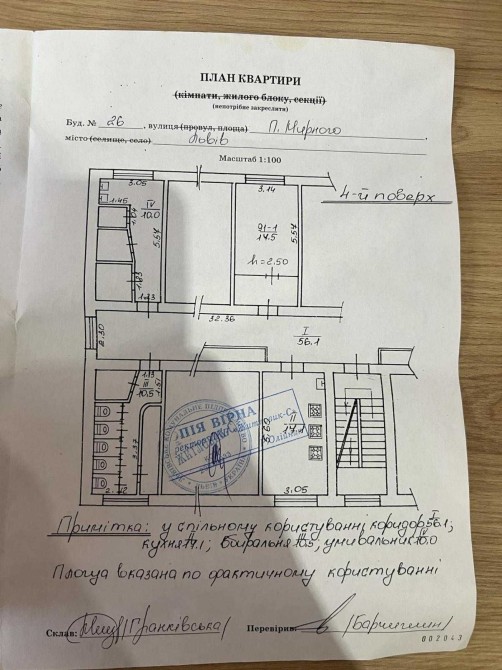 ПЛАН КВАРТИРИ
(кімнати, жилого блоку, секції)
(непотрібне закреслити)
Буд. № 26, вулиця (провул, площа) П. Мирного,
місто (селище, село) Львів
Масштаб 1:100
4-й поверх
3.05
3.14
1.45
IV
10.0
5.57
91-1
17.5
5.57
h=2.50
1.23
1.13
32.36
2.30
I
56.1
1.13
III
10.5
II
17.1
3.05
ПІЯ ВІРНА
Примітка: у спільному користуванні коридор I 56.1;
кухня II 17.1; вбиральня III 10.5, умивальник IV 10.0
Площа вказана по фактичному користуванні
Склав: /Гранківська/
Перевірив:
002043